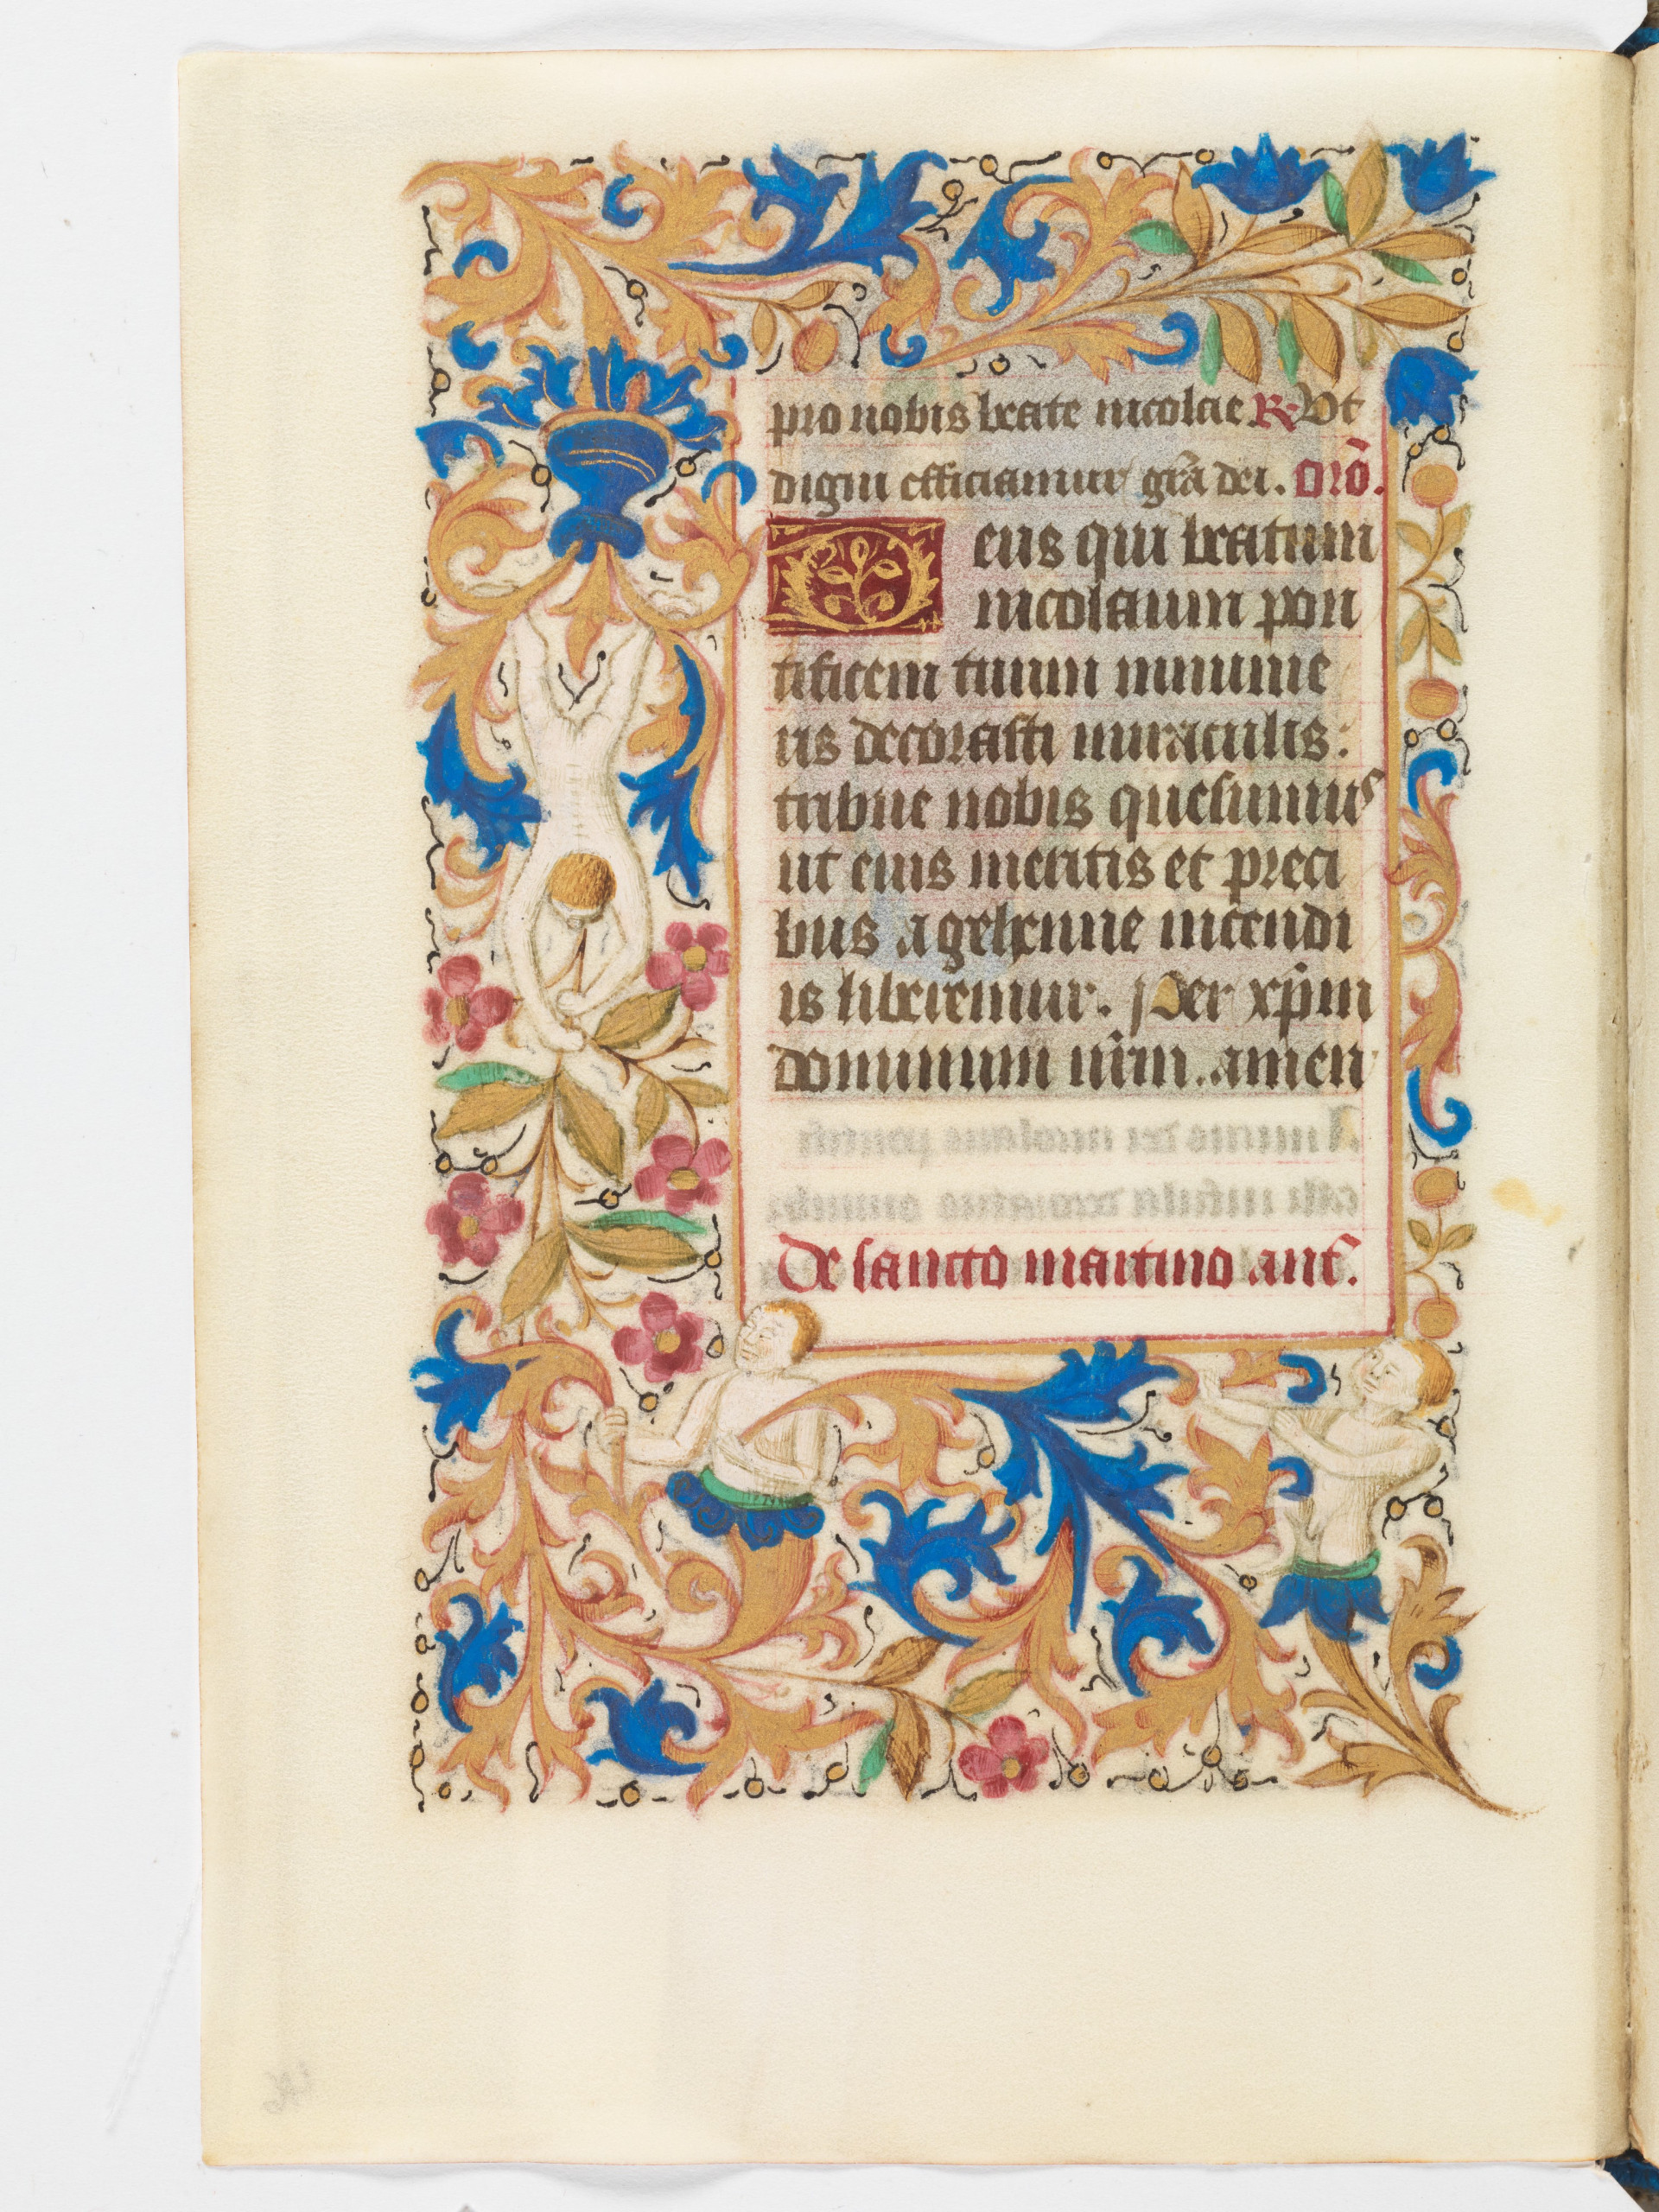 pro nobis beate nicolae R. Vt
digni efficiamur grã dei. orõ.
Deus qui beatum
nicolaum pon
tificem tuum innume
ris decorasti miraculis:
tribue nobis quesumus
ut eius meritis et preci
bus a gehenne incendi
is liberemur. Per xp̃m
dominum nr̃m. amen
De sancto martino ant̃.